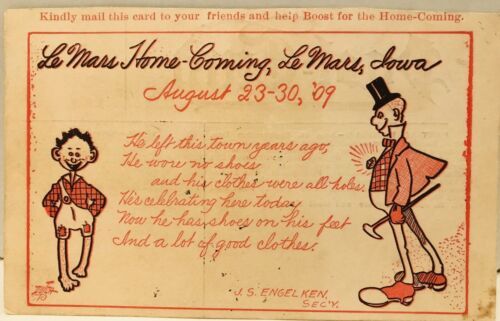 Kindly mail this card to your friends and help Boost for the Home-Coming.
Le Mars Home-Coming, Le Mars, Iowa
August 23-30, '09
He left this town years ago,
He wore no shoes
and his clothes were all holes.
He's celebrating here today
Now he has shoes on his feet
And a lot of good clothes.
J.S. ENGELKEN,
SEC'Y.